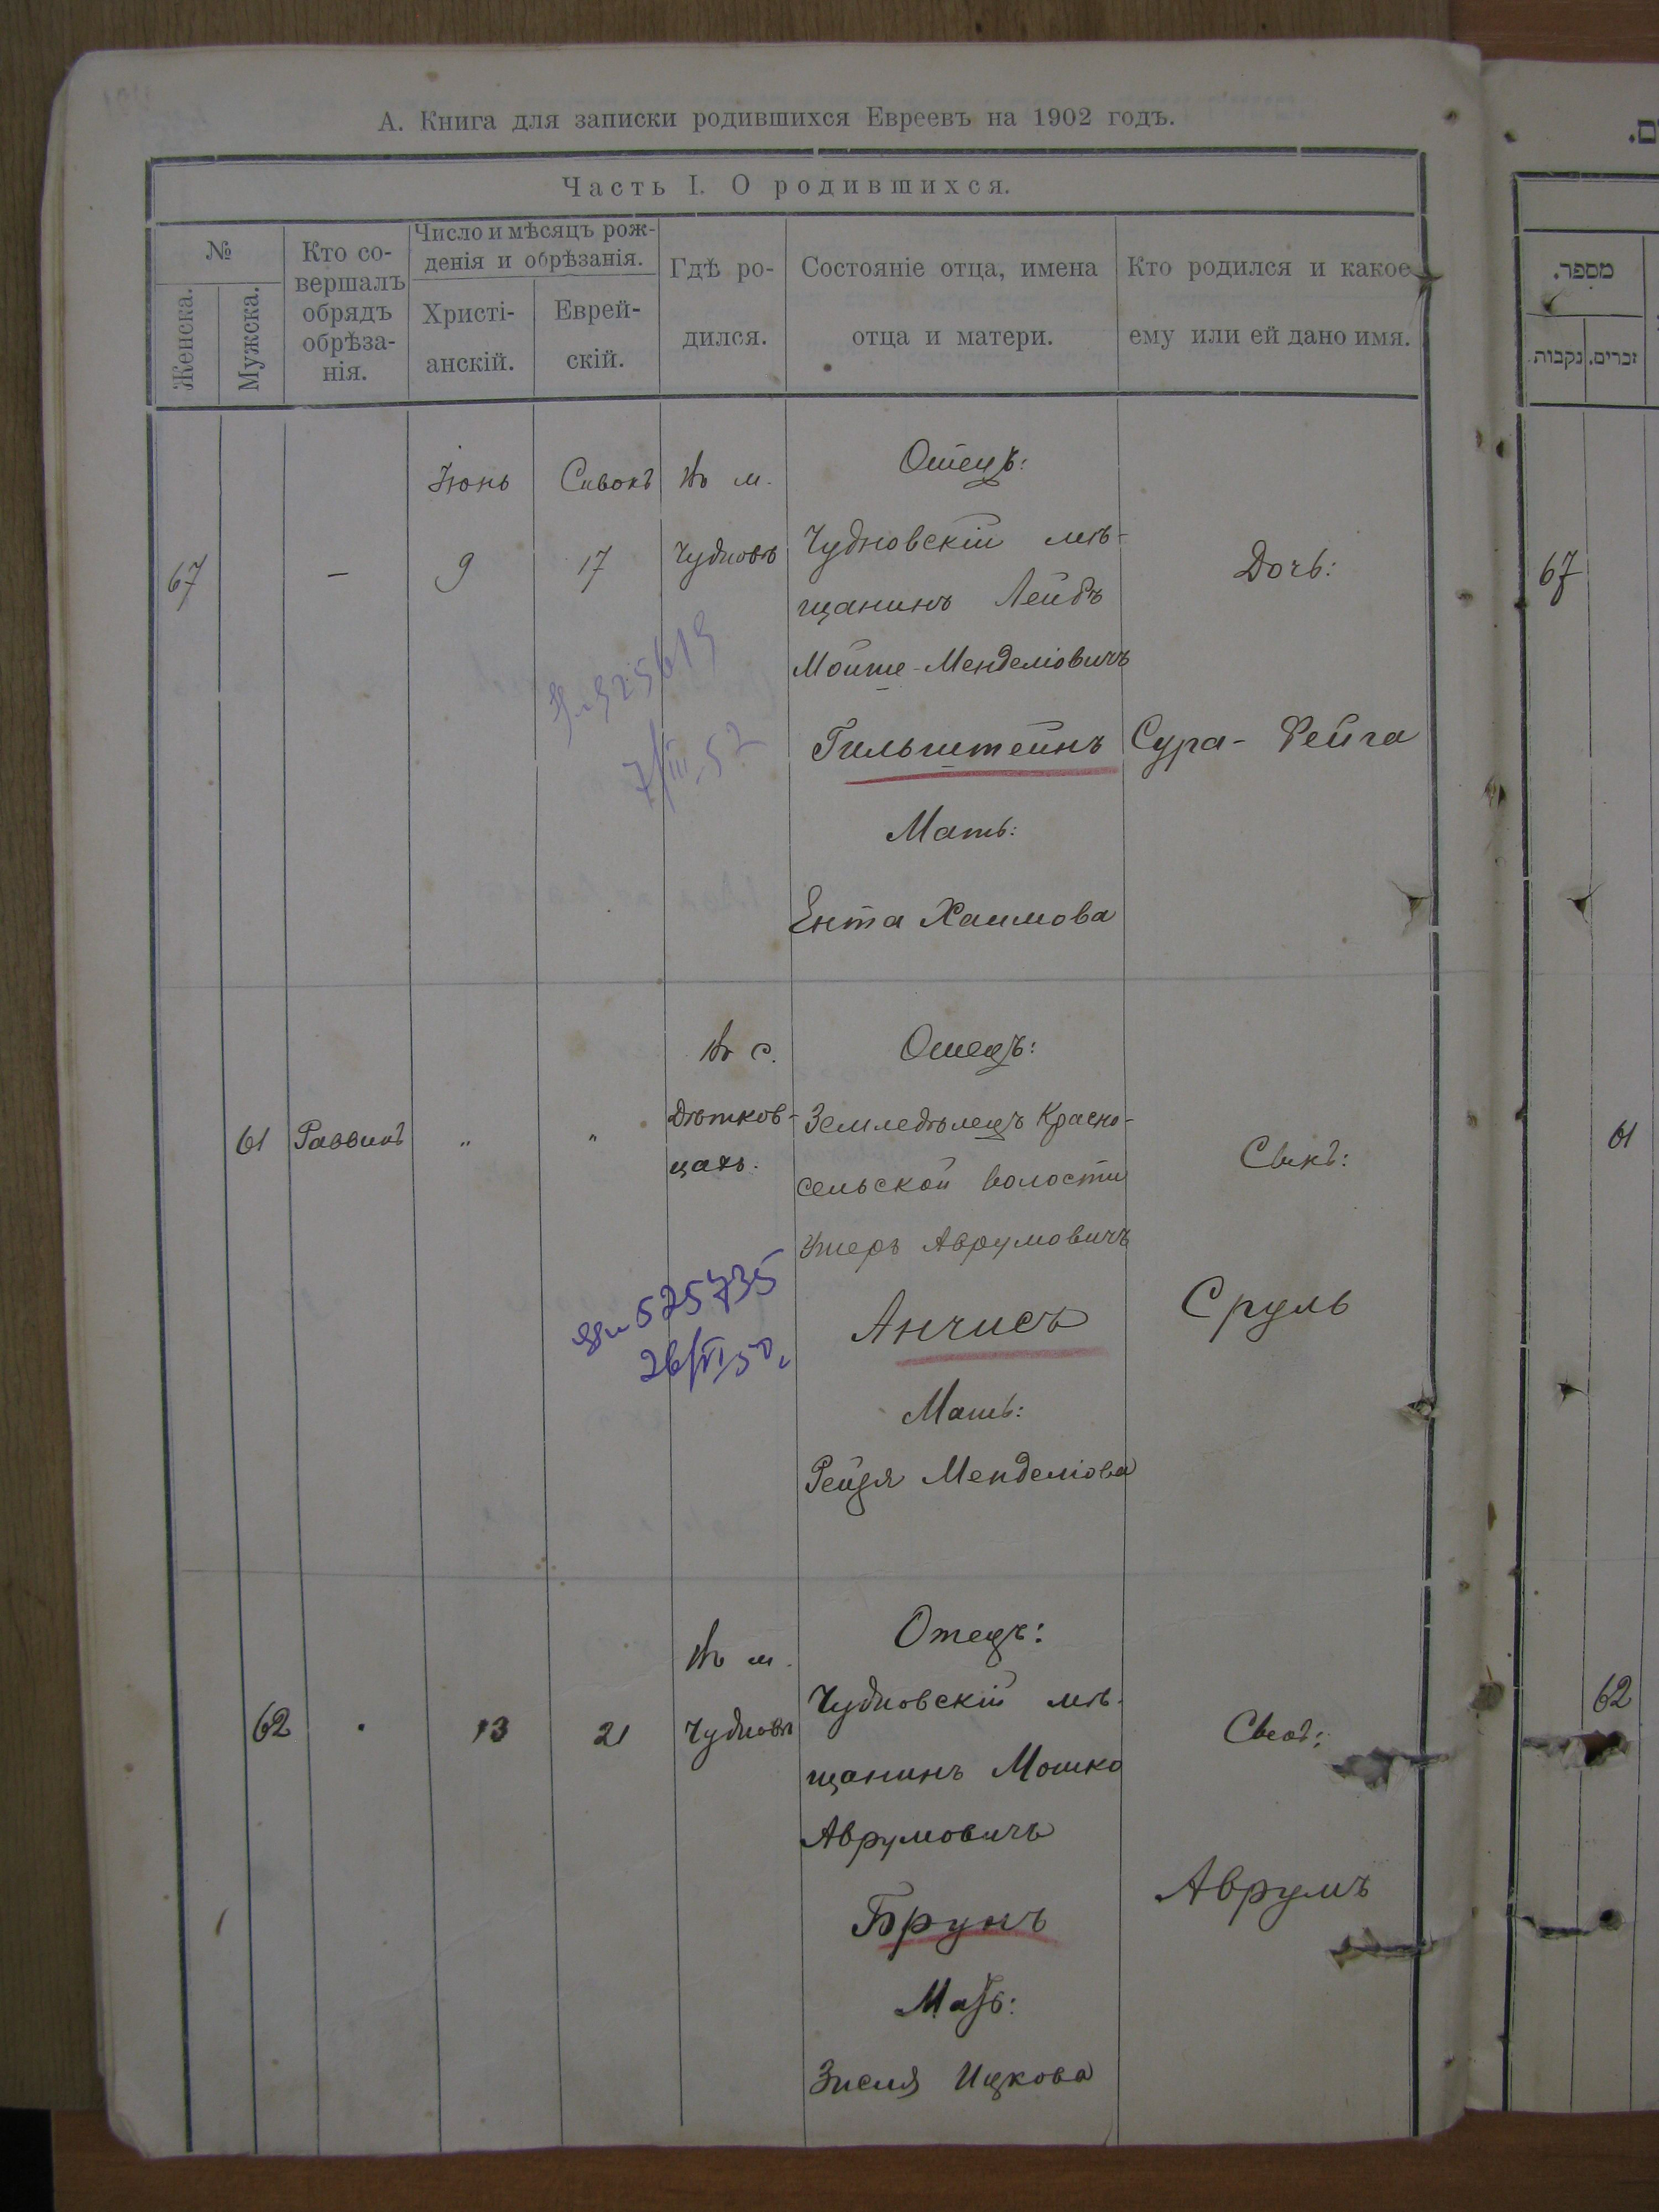 А. Книга для записки родившихся Евреевъ на 1902 годъ.
Часть I. О родившихся.
№
Женска.
Мужска.
Кто со-
вершалъ
обрядъ
обрѣза-
нія.
Число и мѣсяцъ рож-
денія и обрѣзанія.
Христі-
анскій.
Еврей-
скій.
Гдѣ ро-
дился.
Состояніе отца, имена
отца и матери.
Кто родился и какое
ему или ей дано имя.
67
—
Іюнь
9
Сивонъ
17
Въ м.
Чудновѣ
Отецъ:
Чудновскій мѣ-
щанинъ Лейбъ
Мойше-Менделіовичъ
Гильштейнъ
Мать:
Ента Хаимова
Дочь:
Сура-Фейга
525619
7/III-52
61
Раввинъ
"
"
Въ с.
Дѣтков-
цахъ.
Отецъ:
Земледѣлецъ Красно-
сельской волости
Ушеръ Аврумовичъ
Анчисъ
Мать:
Рейзя Менделіова
Сынъ:
Сруль
525735
26/VI 50
62
13
21
Въ м.
Чудновѣ
Отецъ:
Чудновскій мѣ-
щанинъ Мошко
Аврумовичъ
Брунъ
Мать:
Зисля Ицкова
Сынъ:
Аврумъ
מספר.
זכרים.
נקבות.
67
61
62